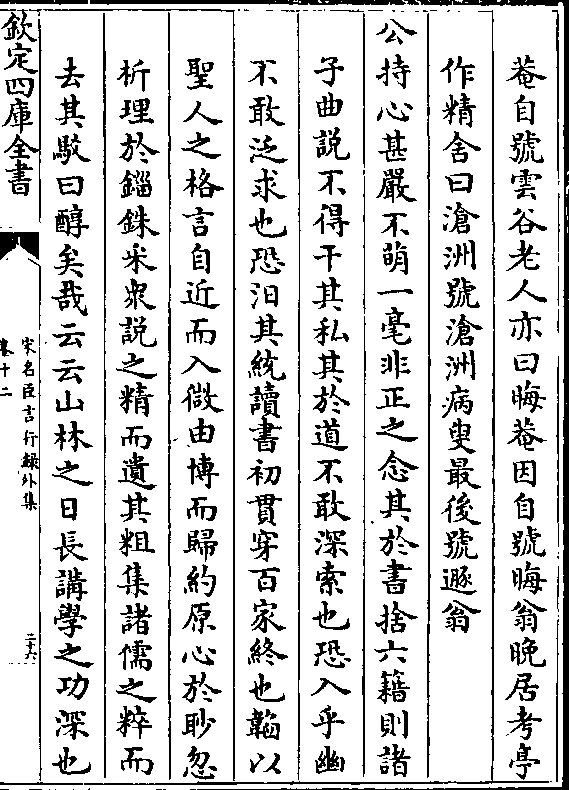 菴自號雲谷老人亦曰晦菴因自號晦翁晚居考亭
作精舍曰滄洲號滄洲病叟最後號遯翁
公持心甚嚴不萌一毫非正之念其於書捨六籍則諸
子曲説不得干其私其於道不敢深索也恐入乎幽
不敢泛求也恐汨其統讀書初貫穿百家終也韜以
聖人之格言自近而入微由博而歸約原心於眇忽
析理於錙銖采衆説之精而遺其粗集諸儒之粹而
去其駁曰醇矣哉云云山林之日長講學之功深也
欽定四庫全書
宋名臣言行録外集
卷十二
二十六